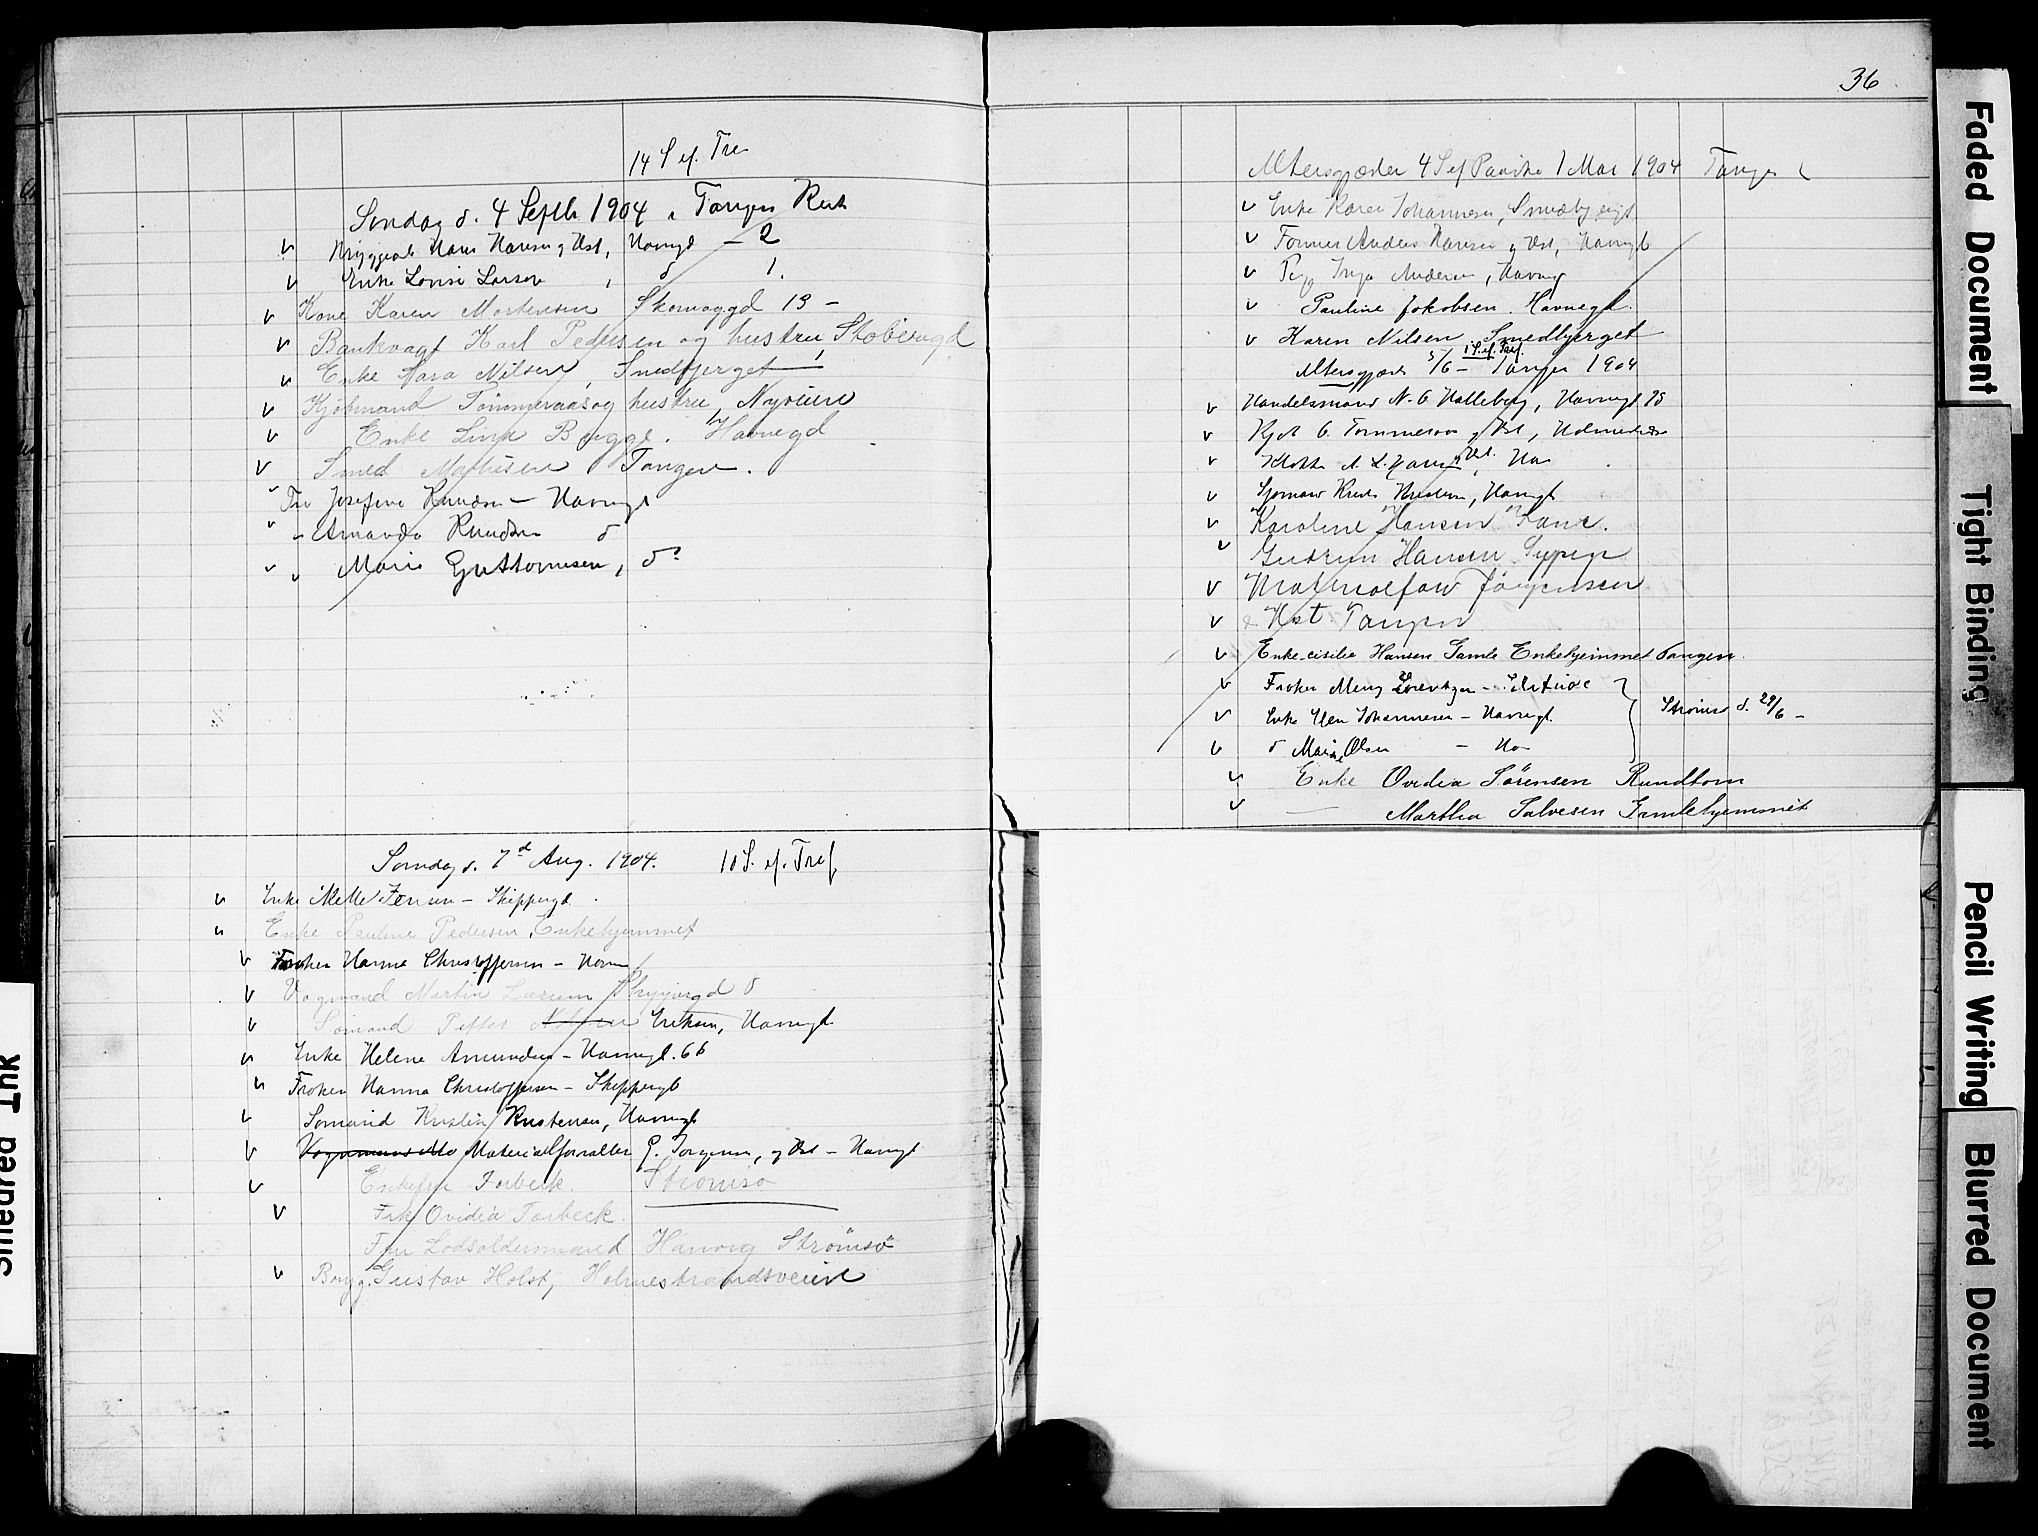 14 S ef. Tre
Søndag d. 4 Septb 1904 i Tangen Kirk
Bryggearb Hans Hansen og Hst, Havnegd – 2
Enke Lovise Larsen, d 1.
Kone Karen Mortensen Skomaggd 13 –
Bankvagt Karl Pedersen og hustru, Stobergd
Enke Sara Nilsen, Smedbjerget
Kjøbmand Tømmeraas og hustru, Nyveien
Enke Brygge. Havnegd
Smed Mathisen Tangen.
Frk Josefine Knudsen – Havnegd
– Amanda Knudsen d
" Marie Guttormsen, do
Søndag d. 7d Aug. 1904. 10 S. ef. Tref,
Enke Mette Jensen – Skippergd
Enke Pauline Pedersen, Enkehjemmet
Frøken Hanna Christoffersen – Havn
Vognmand Martin Skippergd d
Sømand Petter Eriksen, Havnegd
Enke Helene Amundsen – Havnegd. 66
Frøken Hanna Christoffersen – Skippergd
Sømand Kristian Kristensen, Havnegd
Materialforvalter G. Jørgensen, og Hst – Havnegd
Enkefru Torbeck. Strømsø
Frk Ovidia Torbeck.
Fru Lodsoldermand Strømsø
Brygg. Gustav Holst, Holmestrandsveien
36
Altersgjæster 4 S ef Paaske 1 Mai 1904 Tangen
Enke Karen Johannesen, Smedbjerget
Former Anders Hansen og Hst, Havnegd
Pige Inga Andersen, Havneg
Pauline Jakobsen. Havnegd.
Karen Nilsen Smedbjerget
1 S. ef. Tref.
Altersgjæster 5/6 – Tangen 1904
Handelsmand N. C. Halleberg, Havnegd 98
Kjøb C. Tommeraas og Hst,
Klokker A. L. Hansen og Hst. Ha
Sjømand Krist. Kristensen, Havnegd
Karoline Hansen Kone.
Gudrun Hansen Sypige
Matrialforv Jørgensen
& Hst. Tangen
Enke Cicilie Hansen Gamle Enkehjemmet Tangen.
Frøken Meny Lorentzen –
Enke Elen Johannesen – Havnegd. Strømsø d. 29/6 –
d Maria Olsen – Ha
Enke Ovidia Sørensen Rundtom
— Marthea Salvesen Gamlehjemmet
Faded Document
Tight Binding
Pencil Writing
Blurred Document
Smeared Ink